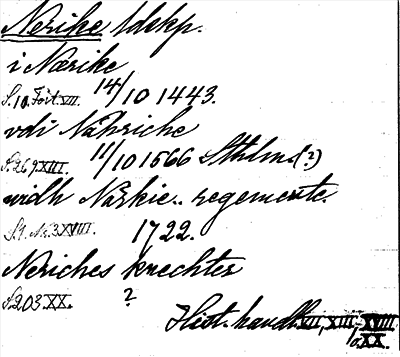 Nerike ldskp.
i Nærike
S. 10. Fört. VII. 14/10 1443.
vdi Nähriche
S. 269. XIII. 11/10 1566 Sthlm (?)
widh Närkie.. regemente.
S. 1. Nr. 3 XVIII. 1722.
Neriches knechter
S. 203. XX. ?
Hist. handl. VII, XIII, XVIII
XX.